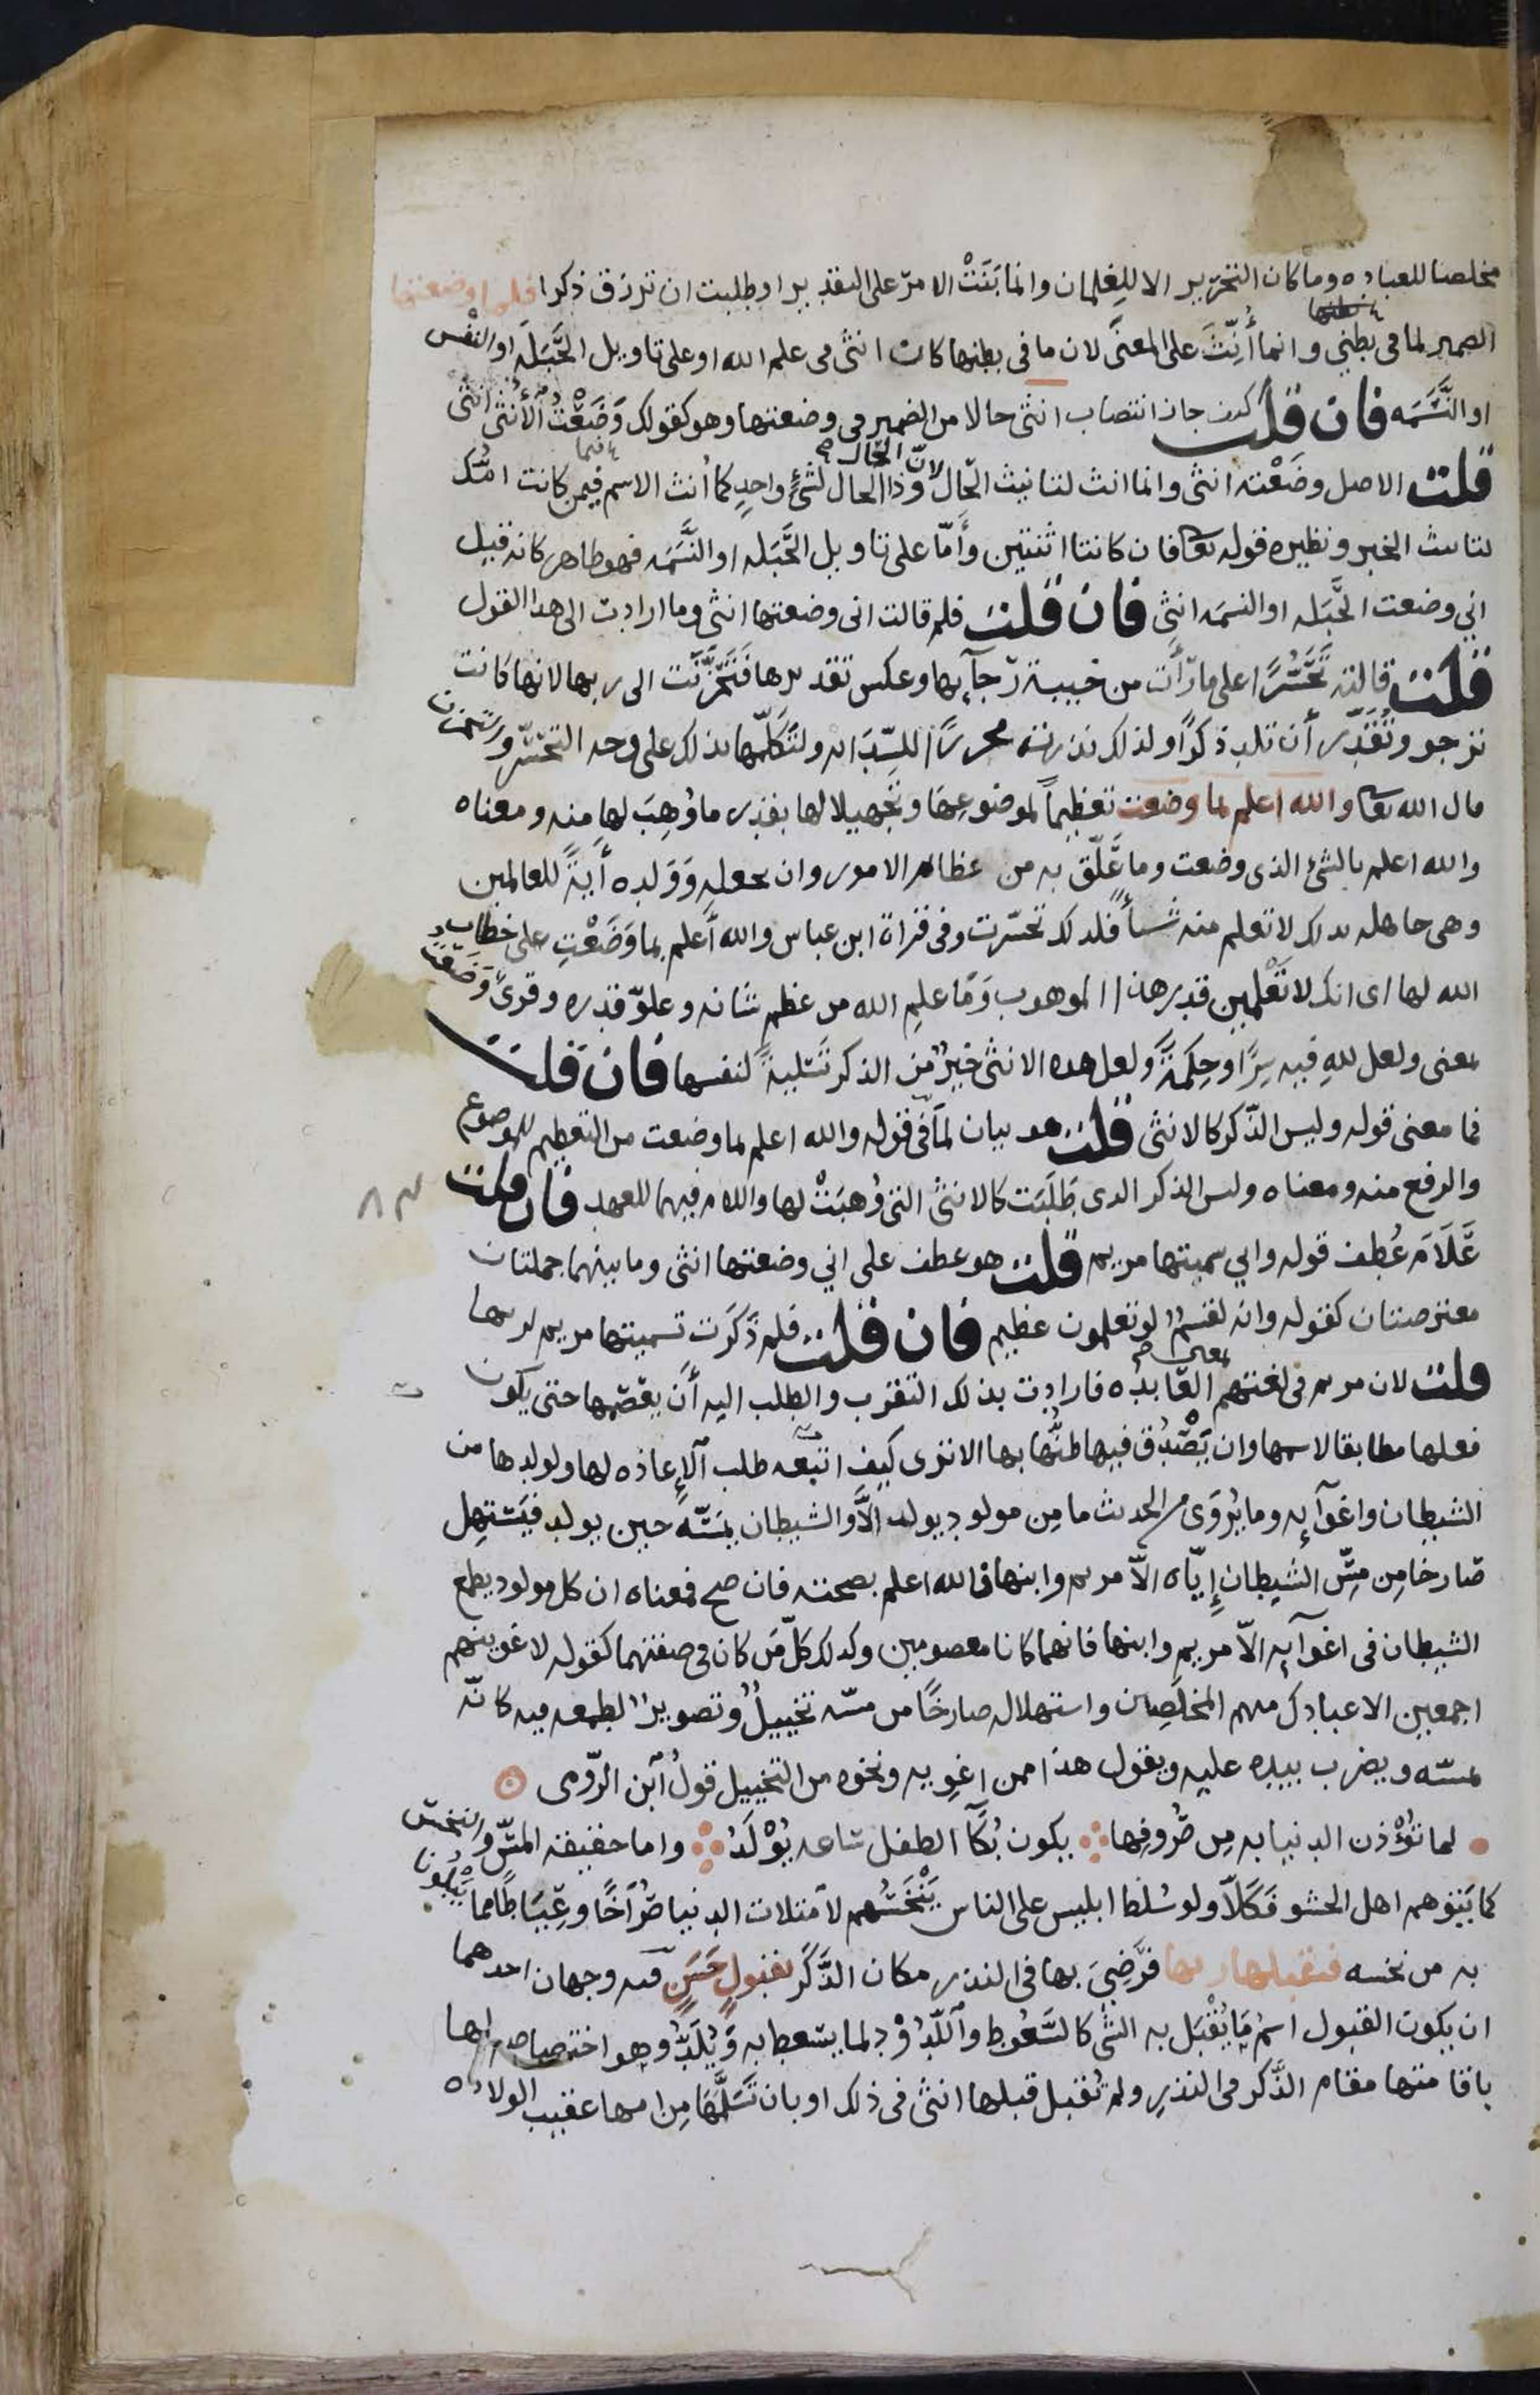 مخلصا للعباده وما كان التحرير الا للغلمان وانما بَنَتْ الامر على التقدير او طلبت ان ترزق ذكرا فلما وضعتها
الضمير لما فى بطني وانما أُنِّثَ على المعنى لان ما فى بطنها كان انثى فى علم الله او على تاويل الحَبَلَه او النفْس
او النَّسَمَه فان قلت كيف جاز انتصاب انثى حالا من الضمير فى وضعتها وهو كقولك وَضَعْتُ الأُنثى أنثى
قلت الاصل وضَعْته انثى وانما انث لتانيث الحال لانّ الحال وذا الحال لشئٍ واحدٍ كما أنث الاسم فى من كانت امّك
لتانيث الخبر ونظيره قوله تعا فان كانتا اثنتين وأمّا على تاويل الحَبَله او النَّسَمَه فهو ظاهر كانه قيل
اني وضعت الحَبَله او النسمه انثى فان قلت فلم قالت انى وضعتها انثى وما ارادت الى هذا القول
قلت قالته تَحَسُّرًا على ما رَأت من خيبة رجآئها وعكس تقديرها فتَحَزَّنَت الى ربها لانها كانت
ترجو وتُقَدِّر أن تلد ذكرًا ولذلك نذرته محررًا للسِّدَانه ولتَكَلّمها بذلك على وجه التحسّر والتحزن
قال الله تعا والله اعلم بما وضعت تعظيماً لموضوعِها وتجهيلا لها بقدر ما وُهِبَ لها منه ومعناه
والله اعلم بالشئ الذى وضعت وما عَلّق به من عظائم الامور وان يجعله وَوَلده أيةً للعالمين
وهى جاهله بذلك لا تعلم منه شيأً فلذلك تحسّرت وفى قراة ابن عباس والله أعلم بما وَضَعْتِ على خطاب
الله لها اى انك لا تَعْلمين قدر هذا الموهوب وَمَا علم الله من عظم شانه وعلوّ قدره وقرئ وَضَعْتُ
بمعنى ولعل للهِ فيه سِرًا وحِكمَةً ولعل هذه الانثى خيرٌ من الذكر تَسْليةً لنفسها فان قلت
فما معنى قوله وليس الذّكر كالانثى قلت هو بيان لما فى قوله والله اعلم بما وضعت من التعظيم للموضوع
والرفع منه ومعناه وليس الذكر الذى طَلَبَت كالانثى التى وُهبَتْ لها واللام فيهما للعهد فان قلت
عَلَامَ عُطِف قوله واني سميتها مريم قلت هو عطف على اني وضعتها انثى وما بينهما جملتان
معترضتان كقوله وانه لقسمٌ لو تعلمون عظيم فان قلت فلم ذَكَرَت تسميتها مريم لربها
قلت لان مريم فى لغتهم بمعنى العَابده فارادت بذلك التقرب والطلب اليه أن يعصمها حتى يكون
فعلها مطابقا لاسمها وان يَصْدُق فيها ظنُّها بها الا ترى كيف اتبعه طلب الإعاذه لها ولولدها من
الشيطان واغوآئه وما يُروَى من الحديث ما مِن مولود يولد إلاَّ والشيطان يمَسّه حين يولد فيَستهِل
صَارخا مِن مَسِّ الشيطان إيّاه الاّ مريم وابنها فالله اعلم بصحته فان صح فمعناه ان كل مولود يطمع
الشيطان فى اغوآئه الاّ مريم وابنها فانهما كانا معصومين وكذلك كلّ مَن كان فى صفتهما كقوله لاغوينهم
اجمعين الا عبادك منهم المخلَصين واستهلاله صارخًا من مسّه تخييلٌ وتصويرٌ لطمعه فيه كانّه
يمسّه ويضرب بيده عليه ويقول هذا ممن اغوِيه ونحوه من التخييل قولُ ابن الرّومى
لما تُؤْذن الدنيا به مِن صُرُوفِها يكون بُكَآ الطفل سَاعه يُوْلَدُ واما حقيقة المسّ والنخس
كما يَتوهم اهل الحشو فَكَلاّ ولو سُلّط ابليس على الناس يَنْخَسُهم لامتلات الدنيا صُرَاخًا وعِيَاطًا مما يَبْلُونا
به من نخسه فتقبلها ربها فرَضِيَ بها فى النذر مكان الذَّكَر بقبولٍ حَسَنٍ فيه وجهان احدهما
ان يكون القبول اسمُ مَا يُقْبَل به الشئ كالسَّعُوط واللَّدُوْد لما يسعط به وَيُلَدُّ وهو اختصاصه لها
باقامتها مقام الذَّكر فى النذرِ ولم تُقبل قبلها انثى فى ذلك او بان تَسَلَّمَها مِن امها عقيب الولاده